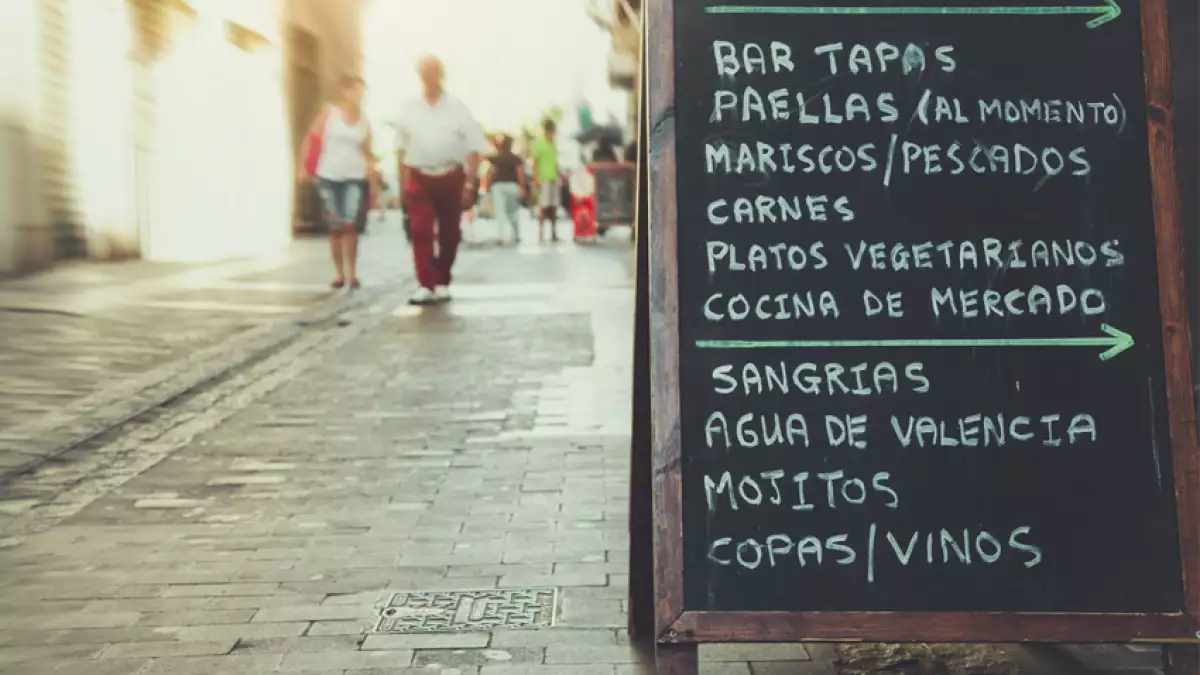 BAR TAPAS
PAELLAS (AL MOMENTO)
MARISCOS/PESCADOS
CARNES
PLATOS VEGETARIANOS
COCINA DE MERCADO
SANGRIAS
AGUA DE VALENCIA
MOJITOS
COPAS/VINOS